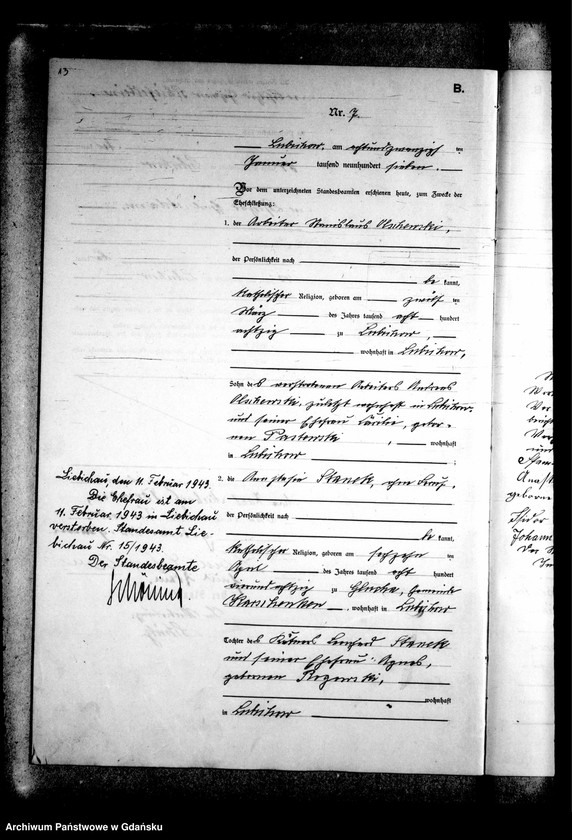 13
B.
Nr. 7.
Lubichow, am achtundzwanzigsten
Januar tausend neunhundert sieben.
Vor dem unterzeichneten Standesbeamten erschienen heute, zum Zwecke der
Eheschließung:
1. der Arbeiter Stanislaus
der Persönlichkeit nach
be kannt,
katholischer Religion, geboren am zwölf ten
März des Jahres tausend acht hundert
achtzig zu Lubichow,
wohnhaft in Lubichow,
Sohn des verstorbenen Arbeiters Andreas
zuletzt wohnhaft in Lubichow,
und seiner Ehefrau Cäcilie, gebor-
nen Pastewski, wohnhaft
in Lubichow;
2. die Anastasia Stanek, ohne Beruf,
der Persönlichkeit nach
be kannt,
katholischer Religion, geboren am sechzehn ten
April des Jahres tausend acht hundert
vierundachtzig zu Gemeinde
wohnhaft in Lubichow
Tochter des Käthners Stanek
und seiner Ehefrau Agnes,
geborenen
wohnhaft
in Lubichow
Liebichau, den 11. Februar 1943.
Die Ehefrau ist am
11. Februar 1943 in Liebichau
verstorben. Standesamt Lie-
bichau Nr. 15/1943.
Der Standesbeamte
geborene
Isidor
Johann
Archiwum Państwowe w Gdańsku